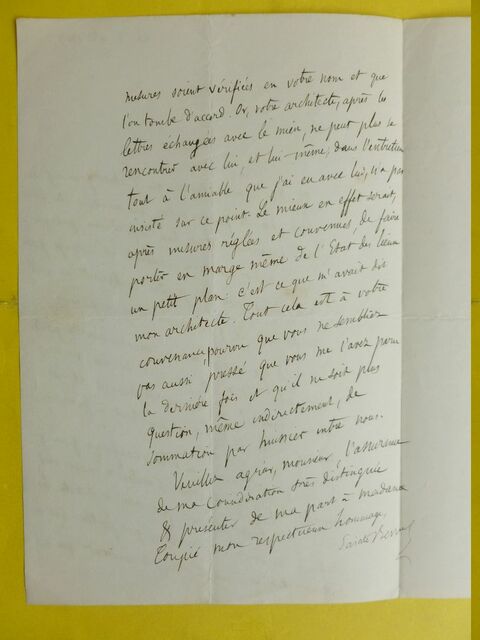 mesures soient vérifiées en votre nom et que
l'on tombe d'accord. Or, votre architecte, après les
lettres échangées avec le mien, ne peut plus se
rencontrer avec lui, et lui-même, dans l'entretien
tout à l'amiable que j'ai eu avec lui, n'a pas
insisté sur ce point. Le mieux en effet serait,
après mesures réglées et convenues, de faire
porter en marge même de l'Etat des lieux
un petit plan: c'est ce que m'avait dit
mon architecte. Tout cela est à votre
convenance, pourvu que vous ne sembliez
pas aussi pressé que vous me l'avez paru
la dernière fois et qu'il ne soit plus
question, même indirectement, de
sommation par huissier entre nous.
Veuillez agréer, monsieur, l'assurance
de ma considération très distinguée
& présenter de ma part à madame
mon respectueux hommage.